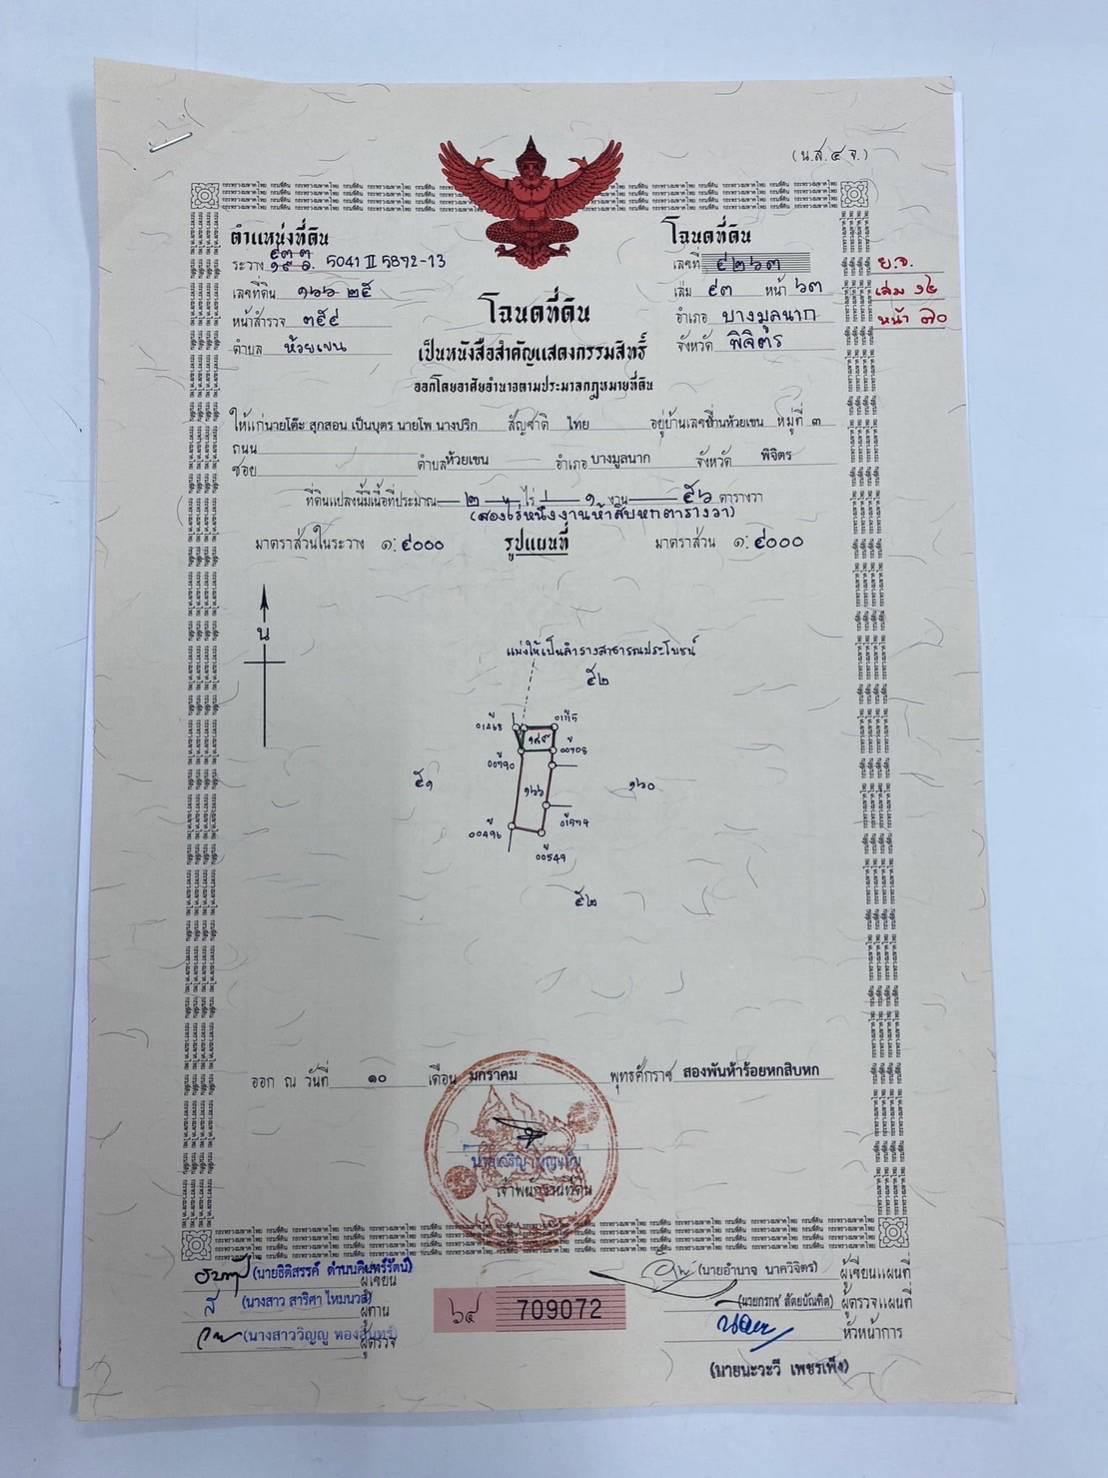 (น.ส.๔ จ.)
ตำแหน่งที่ดิน
ระวาง 5041 II 5872-13
เลขที่ดิน ๑๖๖ ๒๕
หน้าสำรวจ ๓๕๔
ตำบล ห้วยเขน
โฉนดที่ดิน
เลขที่ ๔๒๖๓
เล่ม ๔๓ หน้า ๖๓
อำเภอ บางมูลนาก
จังหวัด พิจิตร
ย.จ.
เล่ม ๑๔
หน้า ๗๐
โฉนดที่ดิน
เป็นหนังสือสำคัญแสดงกรรมสิทธิ์
ออกโดยอาศัยอำนาจตามประมวลกฎหมายที่ดิน
ให้แก่ นายโต๊ะ สุกสอน เป็นบุตร นายโพ นางปริก สัญชาติ ไทย อยู่บ้านเลขที่ บ้านห้วยเขน หมู่ที่ ๓
ถนน
ซอย ตำบล ห้วยเขน อำเภอ บางมูลนาก จังหวัด พิจิตร
ที่ดินแปลงนี้มีเนื้อที่ประมาณ ๒ ไร่ ๑ งาน ๕๖ ตารางวา
(สองไร่หนึ่งงานห้าสิบหกตารางวา)
มาตราส่วนในระวาง ๑:๔๐๐๐ รูปแผนที่ มาตราส่วน ๑:๔๐๐๐
น
แบ่งให้เป็นลำรางสาธารณประโยชน์
๕๒
๕๑
๑๖๖
๑๖๐
00549
๕๒
ออก ณ วันที่ ๑๐ เดือน มกราคม พุทธศักราช สองพันห้าร้อยหกสิบหก
เจ้าพนักงานที่ดิน
ผู้เขียน
(นางสาว สาริศา ไหมนวล) ผู้ทาน
ผู้ตรวจ
๖๔ 709072
(นายอำนาจ นาควิจิตร) ผู้เขียนแผนที่
(นายกรกช สัตยบัณฑิต) ผู้ตรวจแผนที่
หัวหน้าการ
(นายนะวะวี เพชรเพ็ง)